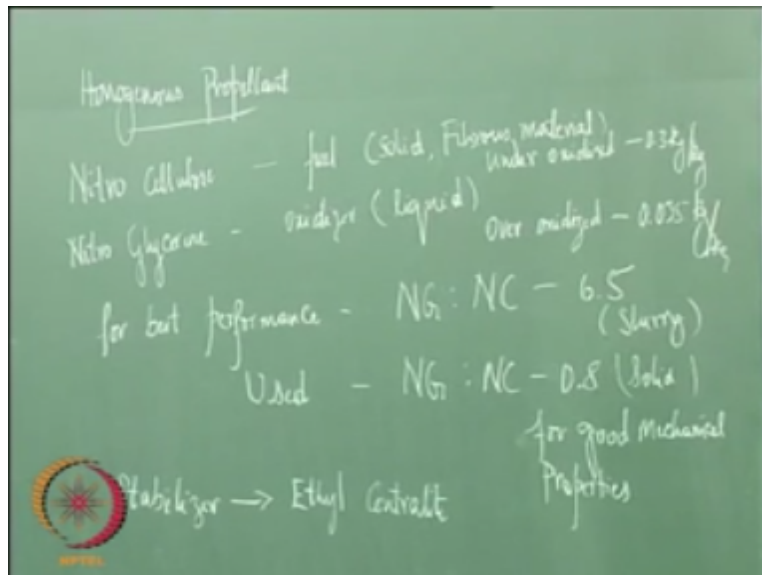 Homogenous Propellant
Nitro Cellulose - fuel (Solid, Fibrous material)
under oxidised -
Nitro Glycerine - oxidizer (liquid)
Over oxidized - 0.035 kg/
for best performance - NG : NC - 6.5
(Slurry)
Used - NG : NC - 0.8 (Solid)
for good Mechanical
Properties
Stabilizer → Ethyl Centralite
NPTEL